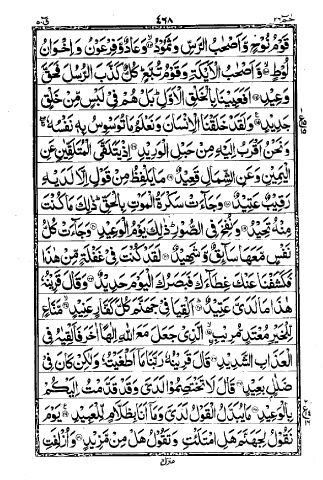 حٰمٓ ٢٦ ٤٦٨ قٓ ٥٠
قَوْمُ نُوْحٍ وَّاَصْحٰبُ الرَّسِّ وَثَمُوْدُ وَعَادٌ وَّفِرْعَوْنُ وَاِخْوَانُ
لُوْطٍ وَّاَصْحٰبُ الْاَيْكَةِ وَقَوْمُ تُبَّعٍ كُلٌّ كَذَّبَ الرُّسُلَ فَحَقَّ
وَعِيْدِ اَفَعَيِيْنَا بِالْخَلْقِ الْاَوَّلِ بَلْ هُمْ فِيْ لَبْسٍ مِّنْ خَلْقٍ
جَدِيْدٍ وَلَقَدْ خَلَقْنَا الْاِنْسَانَ وَنَعْلَمُ مَا تُوَسْوِسُ بِهٖ نَفْسُهٗ
وَنَحْنُ اَقْرَبُ اِلَيْهِ مِنْ حَبْلِ الْوَرِيْدِ اِذْ يَتَلَقَّى الْمُتَلَقِّيٰنِ عَنِ
الْيَمِيْنِ وَعَنِ الشِّمَالِ قَعِيْدٌ مَا يَلْفِظُ مِنْ قَوْلٍ اِلَّا لَدَيْهِ
رَقِيْبٌ عَتِيْدٌ وَجَآءَتْ سَكْرَةُ الْمَوْتِ بِالْحَقِّ ذٰلِكَ مَا كُنْتَ
مِنْهُ تَحِيْدُ وَنُفِخَ فِي الصُّوْرِ ذٰلِكَ يَوْمُ الْوَعِيْدِ وَجَآءَتْ كُلُّ
نَفْسٍ مَّعَهَا سَآئِقٌ وَّشَهِيْدٌ لَقَدْ كُنْتَ فِيْ غَفْلَةٍ مِّنْ هٰذَا
فَكَشَفْنَا عَنْكَ غِطَآءَكَ فَبَصَرُكَ الْيَوْمَ حَدِيْدٌ وَقَالَ قَرِيْنُهٗ
هٰذَا مَا لَدَيَّ عَتِيْدٌ اَلْقِيَا فِيْ جَهَنَّمَ كُلَّ كَفَّارٍ عَنِيْدٍ مَّنَّاعٍ
لِّلْخَيْرِ مُعْتَدٍ مُّرِيْبِ الَّذِيْ جَعَلَ مَعَ اللهِ اِلٰهًا اٰخَرَ فَاَلْقِيٰهُ فِي
الْعَذَابِ الشَّدِيْدِ قَالَ قَرِيْنُهٗ رَبَّنَا مَآ اَطْغَيْتُهٗ وَلٰكِنْ كَانَ فِيْ
ضَلٰلٍۭ بَعِيْدٍ قَالَ لَا تَخْتَصِمُوْا لَدَيَّ وَقَدْ قَدَّمْتُ اِلَيْكُمْ
بِالْوَعِيْدِ مَا يُبَدَّلُ الْقَوْلُ لَدَيَّ وَمَآ اَنَا بِظَلَّامٍ لِّلْعَبِيْدِ يَوْمَ
نَقُوْلُ لِجَهَنَّمَ هَلِ امْتَلَاْتِ وَتَقُوْلُ هَلْ مِنْ مَّزِيْدٍ وَاُزْلِفَتِ